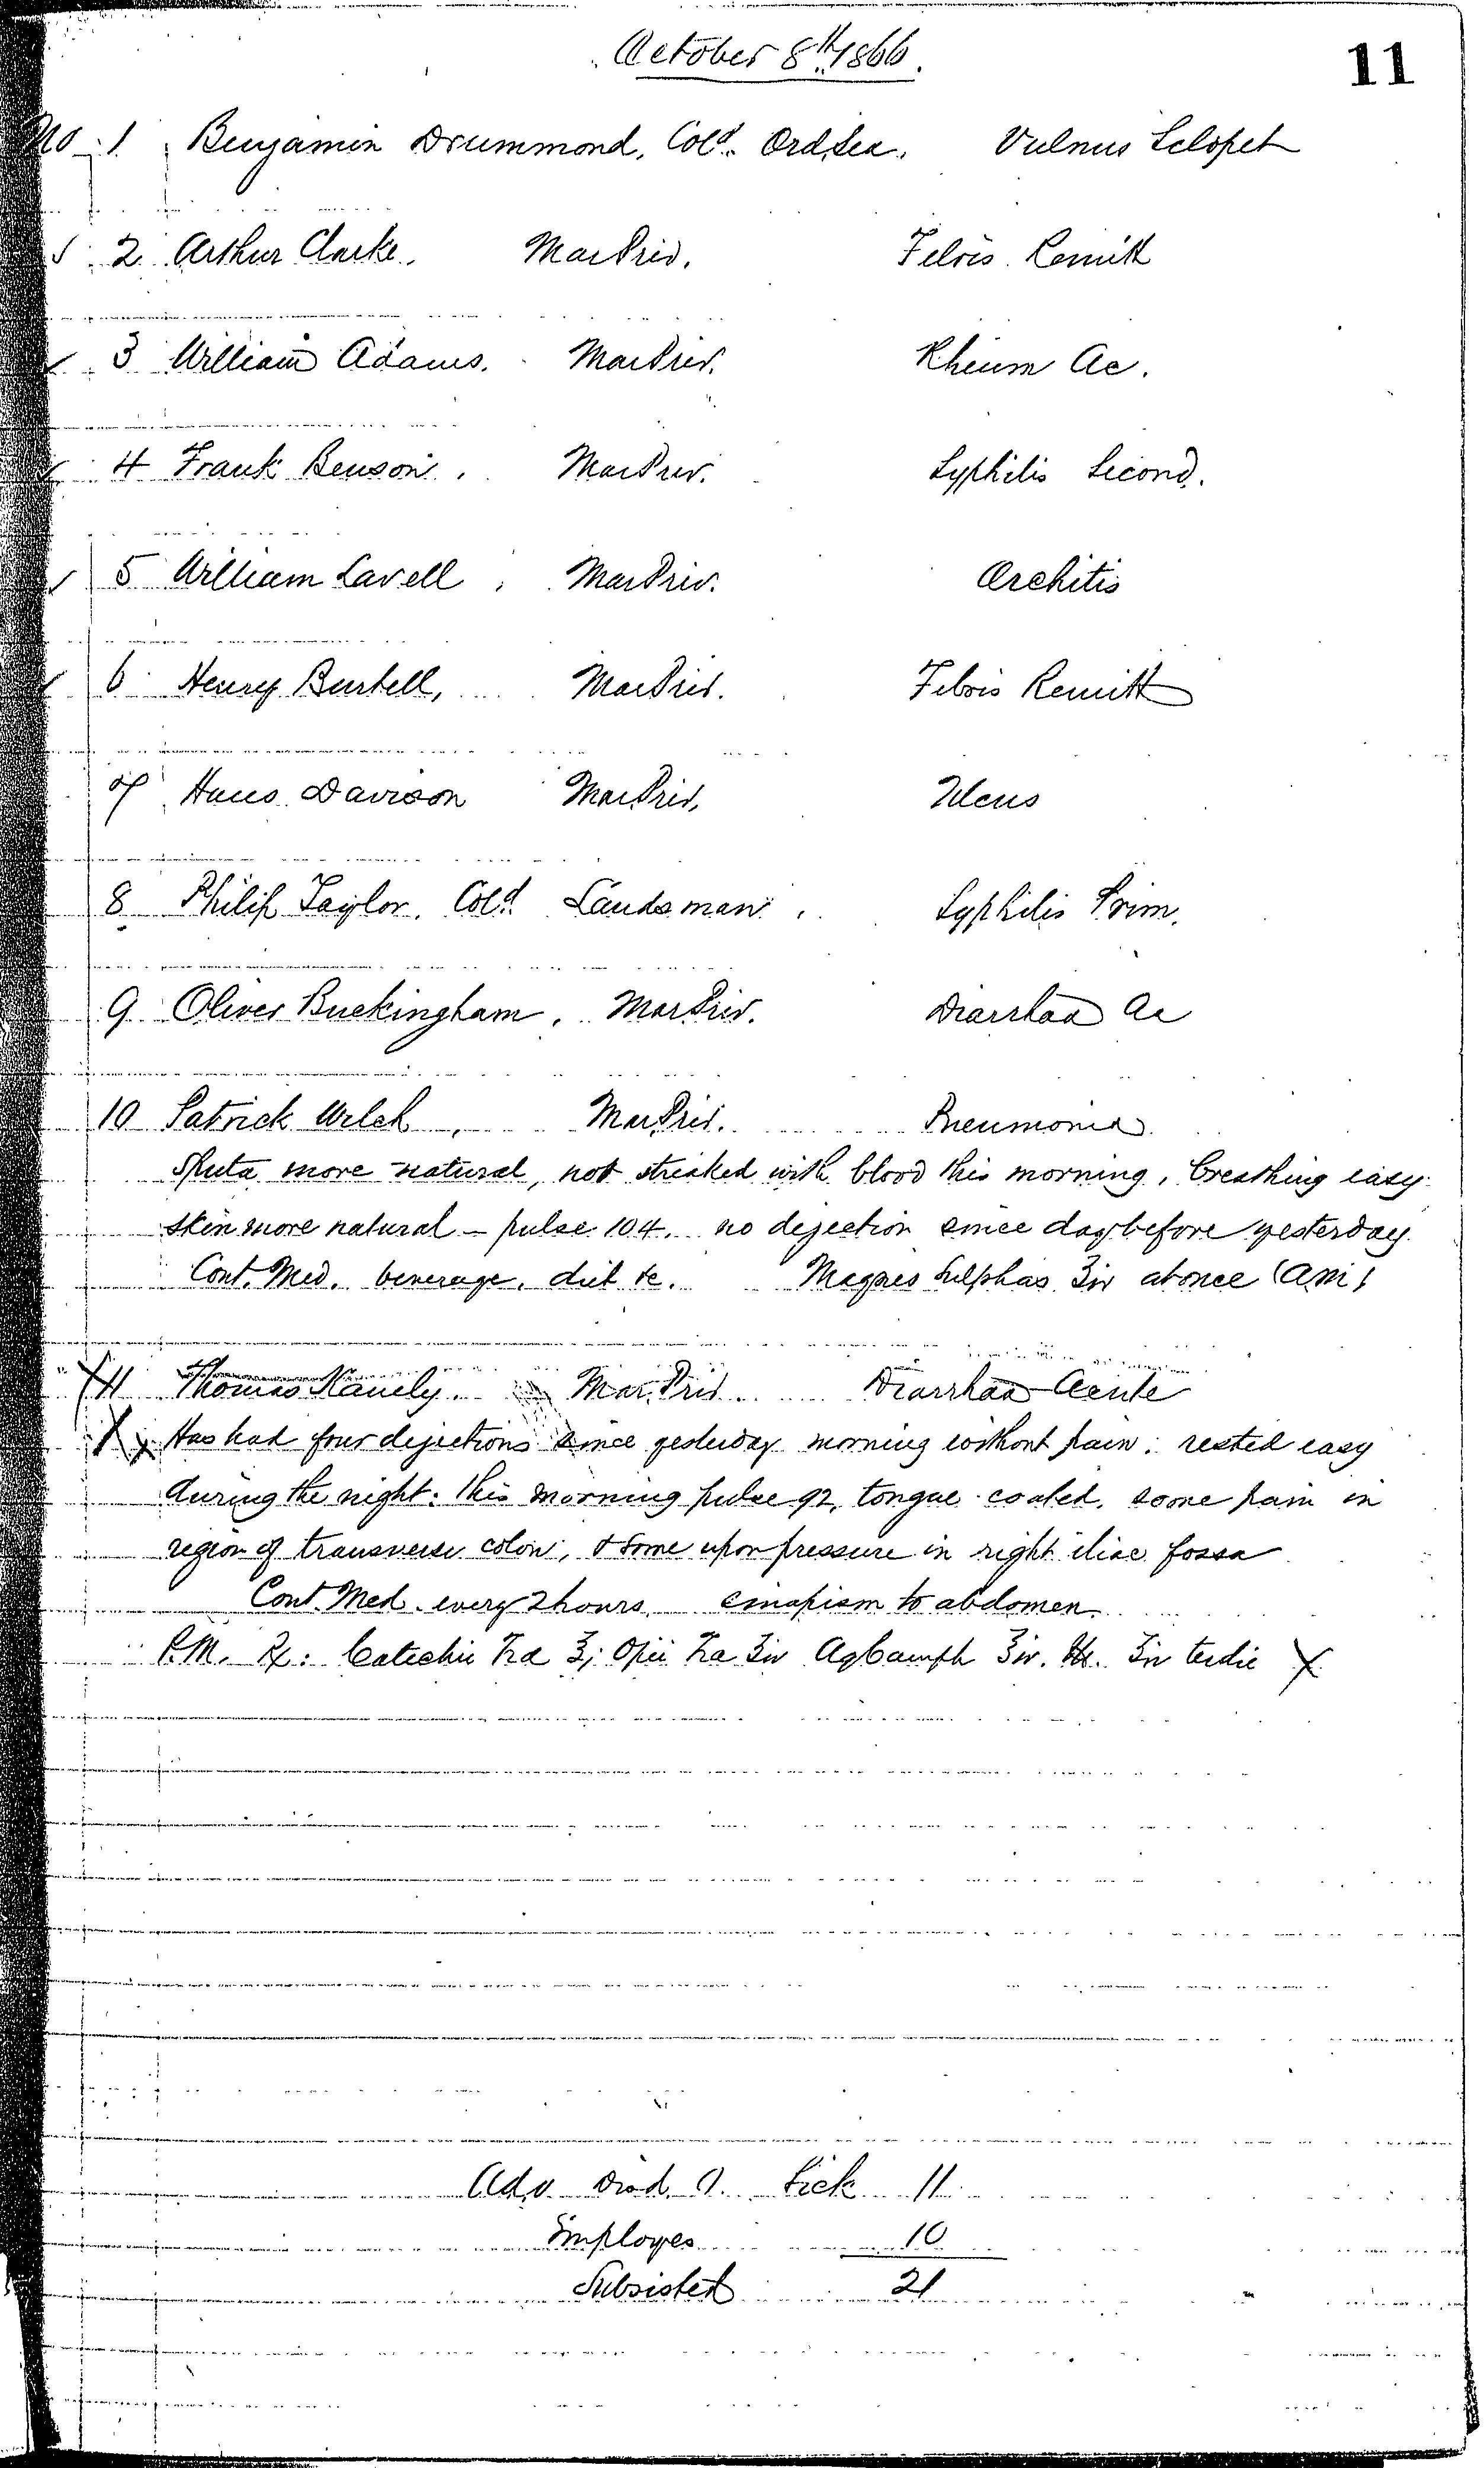 October 8th 1866.
11
No 1 Benjamin Drummond, Cold. Ord, Sea. Vulnus Sclopet
2 Arthur Clarke. Mar Priv. Febris Remitt
3 William Adams. Mar Priv. Rheum Ac.
4 Frank Benson. Mar Priv. Syphilis Second.
5 William Lavell, Mar Priv. Orchitis
6 Henry Burtell, Mar Priv. Febris Remitt
7 Hans Davison Mar Priv, Ulcus
8 Philip Taylor. Cold. Landsman. Syphilis Prim.
9 Oliver Buckingham, Mar Priv. Diarrhœa Ac
10 Patrick Welch, Mar Priv. Pneumonia
Sputa more natural, not streaked with blood this morning, breathing easy
skin more natural – pulse 104. no dejection since day before yesterday.
Cont. Med. beverage, diet &c. Magnes Sulphas ʒiv at once (A.M.)
11 Thomas Mar. Priv. Diarrhœa Acute
Has had four dejections since yesterday morning without pain: rested easy
during the night: this morning pulse 92, tongue coated, some pain in
region of transverse colon, & some upon pressure in right iliac fossa
Cont. Med. every 2 hours. sinapism to abdomen.
P.M. Rx: Catechu Tra ʒj Opii Tra ʒiv Aq Camph ʒiv. ʒiv ter die X
Ad, 0. Disd. 0. Sick 11
Employes 10
Subsisted 21